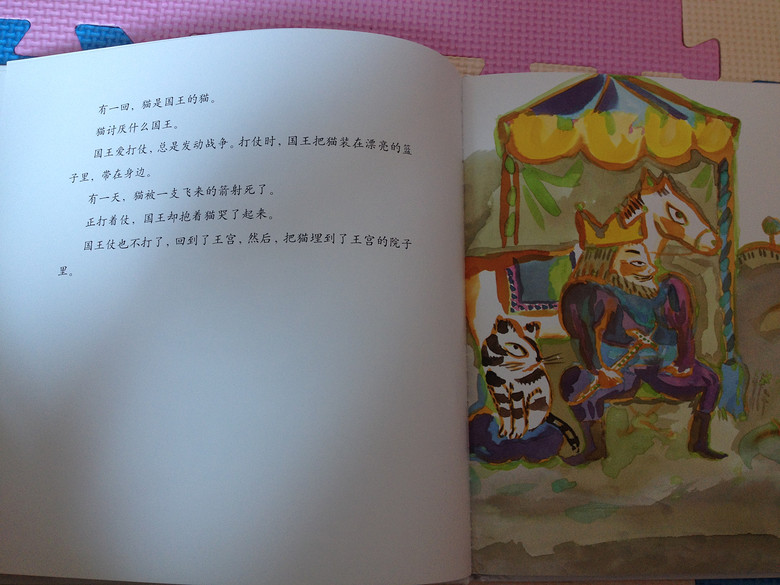 有一回，猫是国王的猫。
猫讨厌什么国王。
国王爱打仗，总是发动战争。打仗时，国王把猫装在漂亮的篮
子里，带在身边。
有一天，猫被一支飞来的箭射死了。
正打着仗，国王却抱着猫哭了起来。
国王仗也不打了，回到了王宫，然后，把猫埋到了王宫的院子
里。